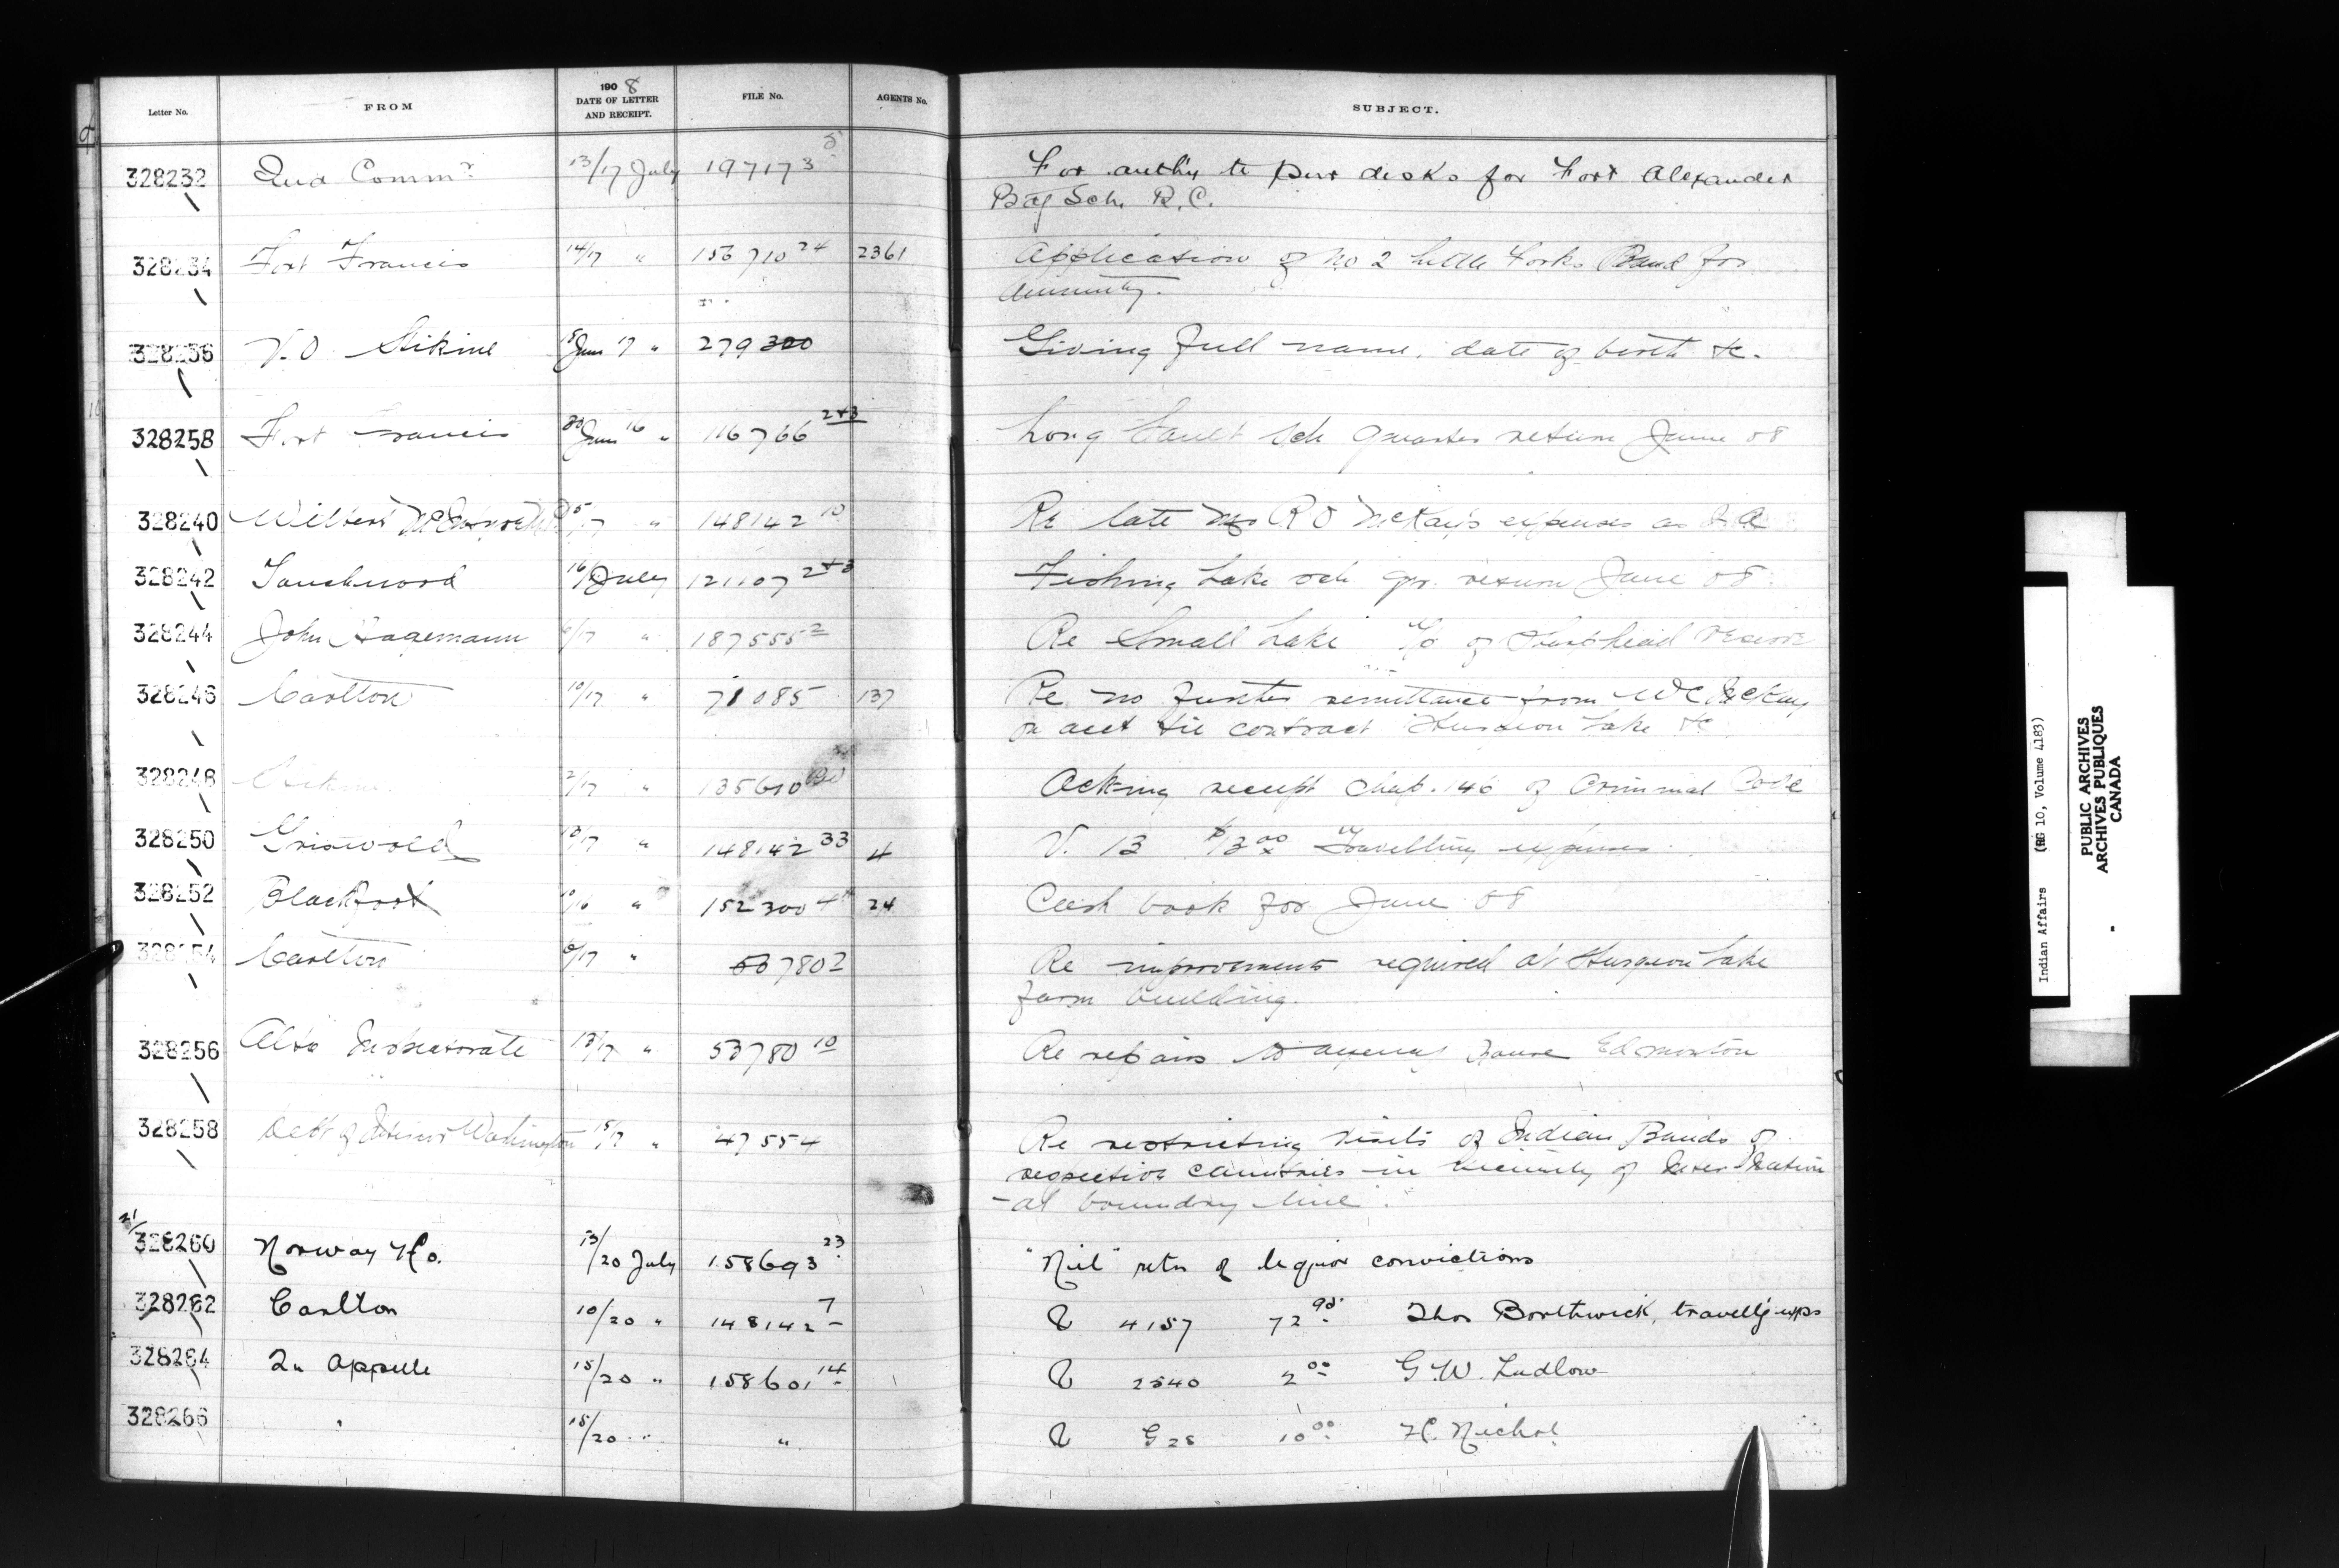 Letter No. FROM 1908 DATE OF LETTER AND RECEIPT. FILE No. AGENTS No. SUBJECT.
328232 Ind Commr 13/17 July 197173 5 For authy to pur desks for Fort Alexander
Bdg Sch. R.C.
328234 Fort Francis 14/17 " 156710 24 2361 Application of No 2 Little Forks Band for
annuity.
328236 V.O. Stikine 5 June 17 " 279300 Giving full name, date of birth &c.
328258 Fort Francis 30 June 16 " 116766 2+3 Long Sault Sch Quarter return June 08
328240 Wilbert 5/17 " 148142 10 Re late R O McKay's expenses as
328242 Touchwood 16/ July 121107 2+3 Fishing Lake sch qr. return June 08.
328244 John Hagemann 6/17 " 187555 2 Re Small Lake of reserve
328246 Carlton 10/17 " 71085 137 Re no further remittance from W C McKay
on acct tie contract Sturgeon Lake &c
328248 2/17 " 135610 Acking receipt chap. 146 of Criminal Code
328250 Griswold 13/17 " 148142 33 4 V. 13 $13 00 Travelling expenses
328252 Blackfoot 10/16 " 152300 4 24 Cash book for June 08
328254 Carlton 8/17 " 53780 2 Re improvements required at Sturgeon Lake
farm building.
328256 Alta Inspectorate 13/17 " 53780 10 Re repairs to agency house Edmonton
328258 Dept of Interior Washington 15/17 " 47554 Re restricting visits of Indian Bands of
respective countries in vicinity of Inter Nation
-al boundry line.
21/
328260 Norway Ho. 13/20 July 158693 23 "Nil" retn of liquor convictions
328262 Carlton 10/20 " 148142 7 V 4157 72 90 Thos Borthwick, travellg exps
328264 Qu Appelle 15/20 " 158601 14 V 2540 2 00 G.W. Ludlow
328266 " 15/20 " " V G 28 10 00 H. Nichol
Indian Affairs (RG 10, Volume 4183)
PUBLIC ARCHIVES
ARCHIVES PUBLIQUES
CANADA